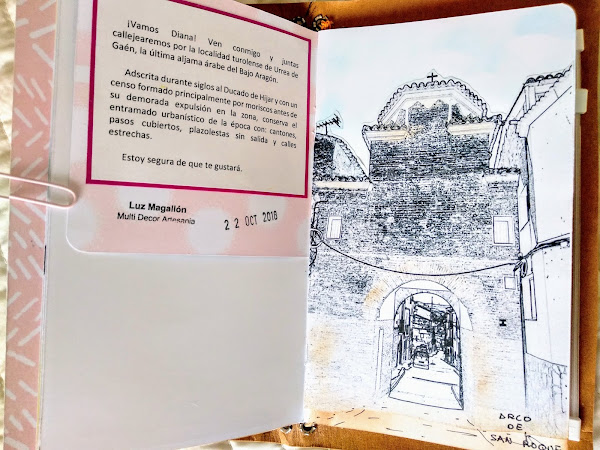 ¡Vamos Diana! Ven conmigo y juntas
callejearemos por la localidad turolense de Urrea de
Gaén, la última aljama árabe del Bajo Aragón.
Adscrita durante siglos al Ducado de Hijar y con un
censo formado principalmente por moriscos antes de
su demorada expulsión en la zona, conserva el
entramado urbanístico de la época con: cantones,
pasos cubiertos, plazolestas sin salida y calles
estrechas.
Estoy segura de que te gustará.
Luz Magallón
Multi Decor Artesania
22 OCT 2018
ARCO
DE
SAN ROQUE